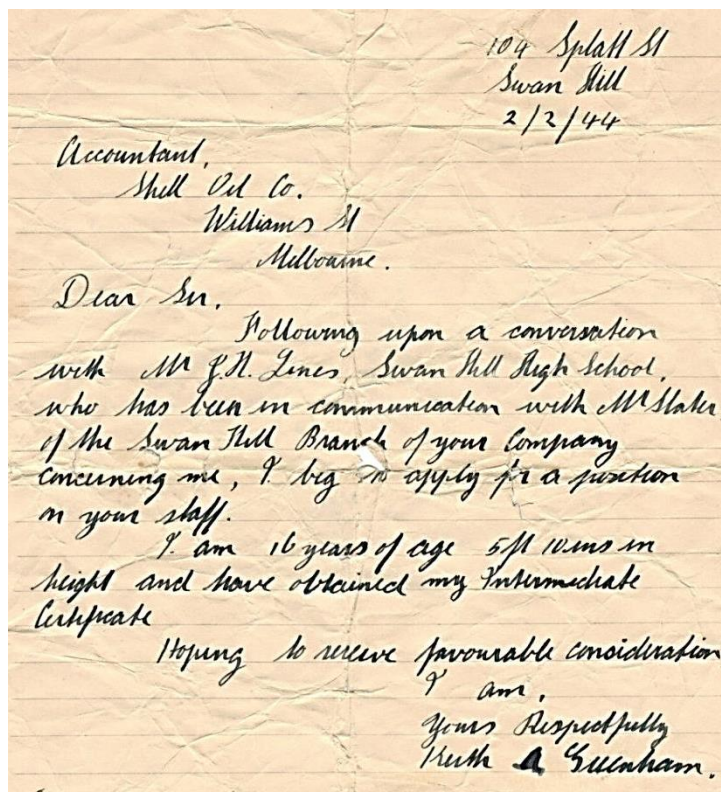 104 Splatt St
Swan Hill
2/2/44
Accountant,
Shell Oil Co.
Williams St
Melbourne.
Dear Sir,
Following upon a conversation
with Mr J.H. Lines, Swan Hill High School,
who has been in communication with Mr Slater
of the Swan Hill Branch of your Company
concerning me, I beg to apply for a position
on your staff.
I am 16 years of age 5ft 10ins in
height and have obtained my Intermediate
Certificate
Hoping to receive favourable consideration
I am,
Yours Respectfully
Keith A Greenham.